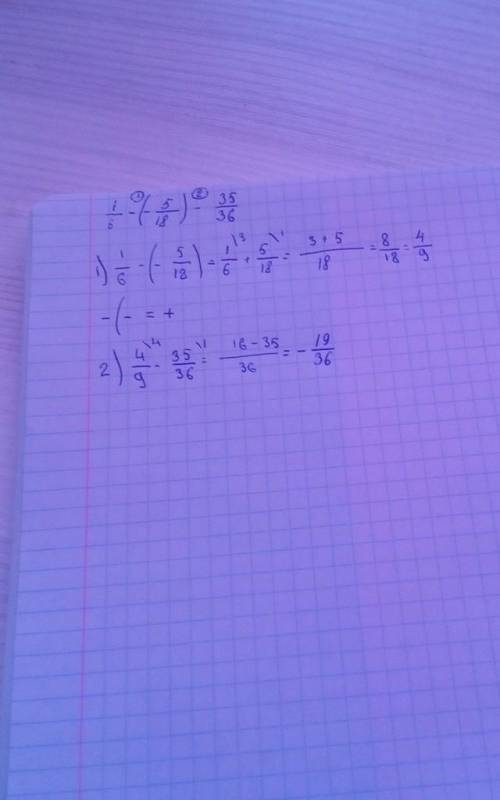 1/6 -① (- 5/18) -② 35/36
1) 1/6 - (- 5/18) = 1\3/6 + 5\1/18 = 3+5/18 = 8/18 = 4/9
- (- = +
2) 4\4/9 - 35\1/36 = 16-35/36 = - 19/36